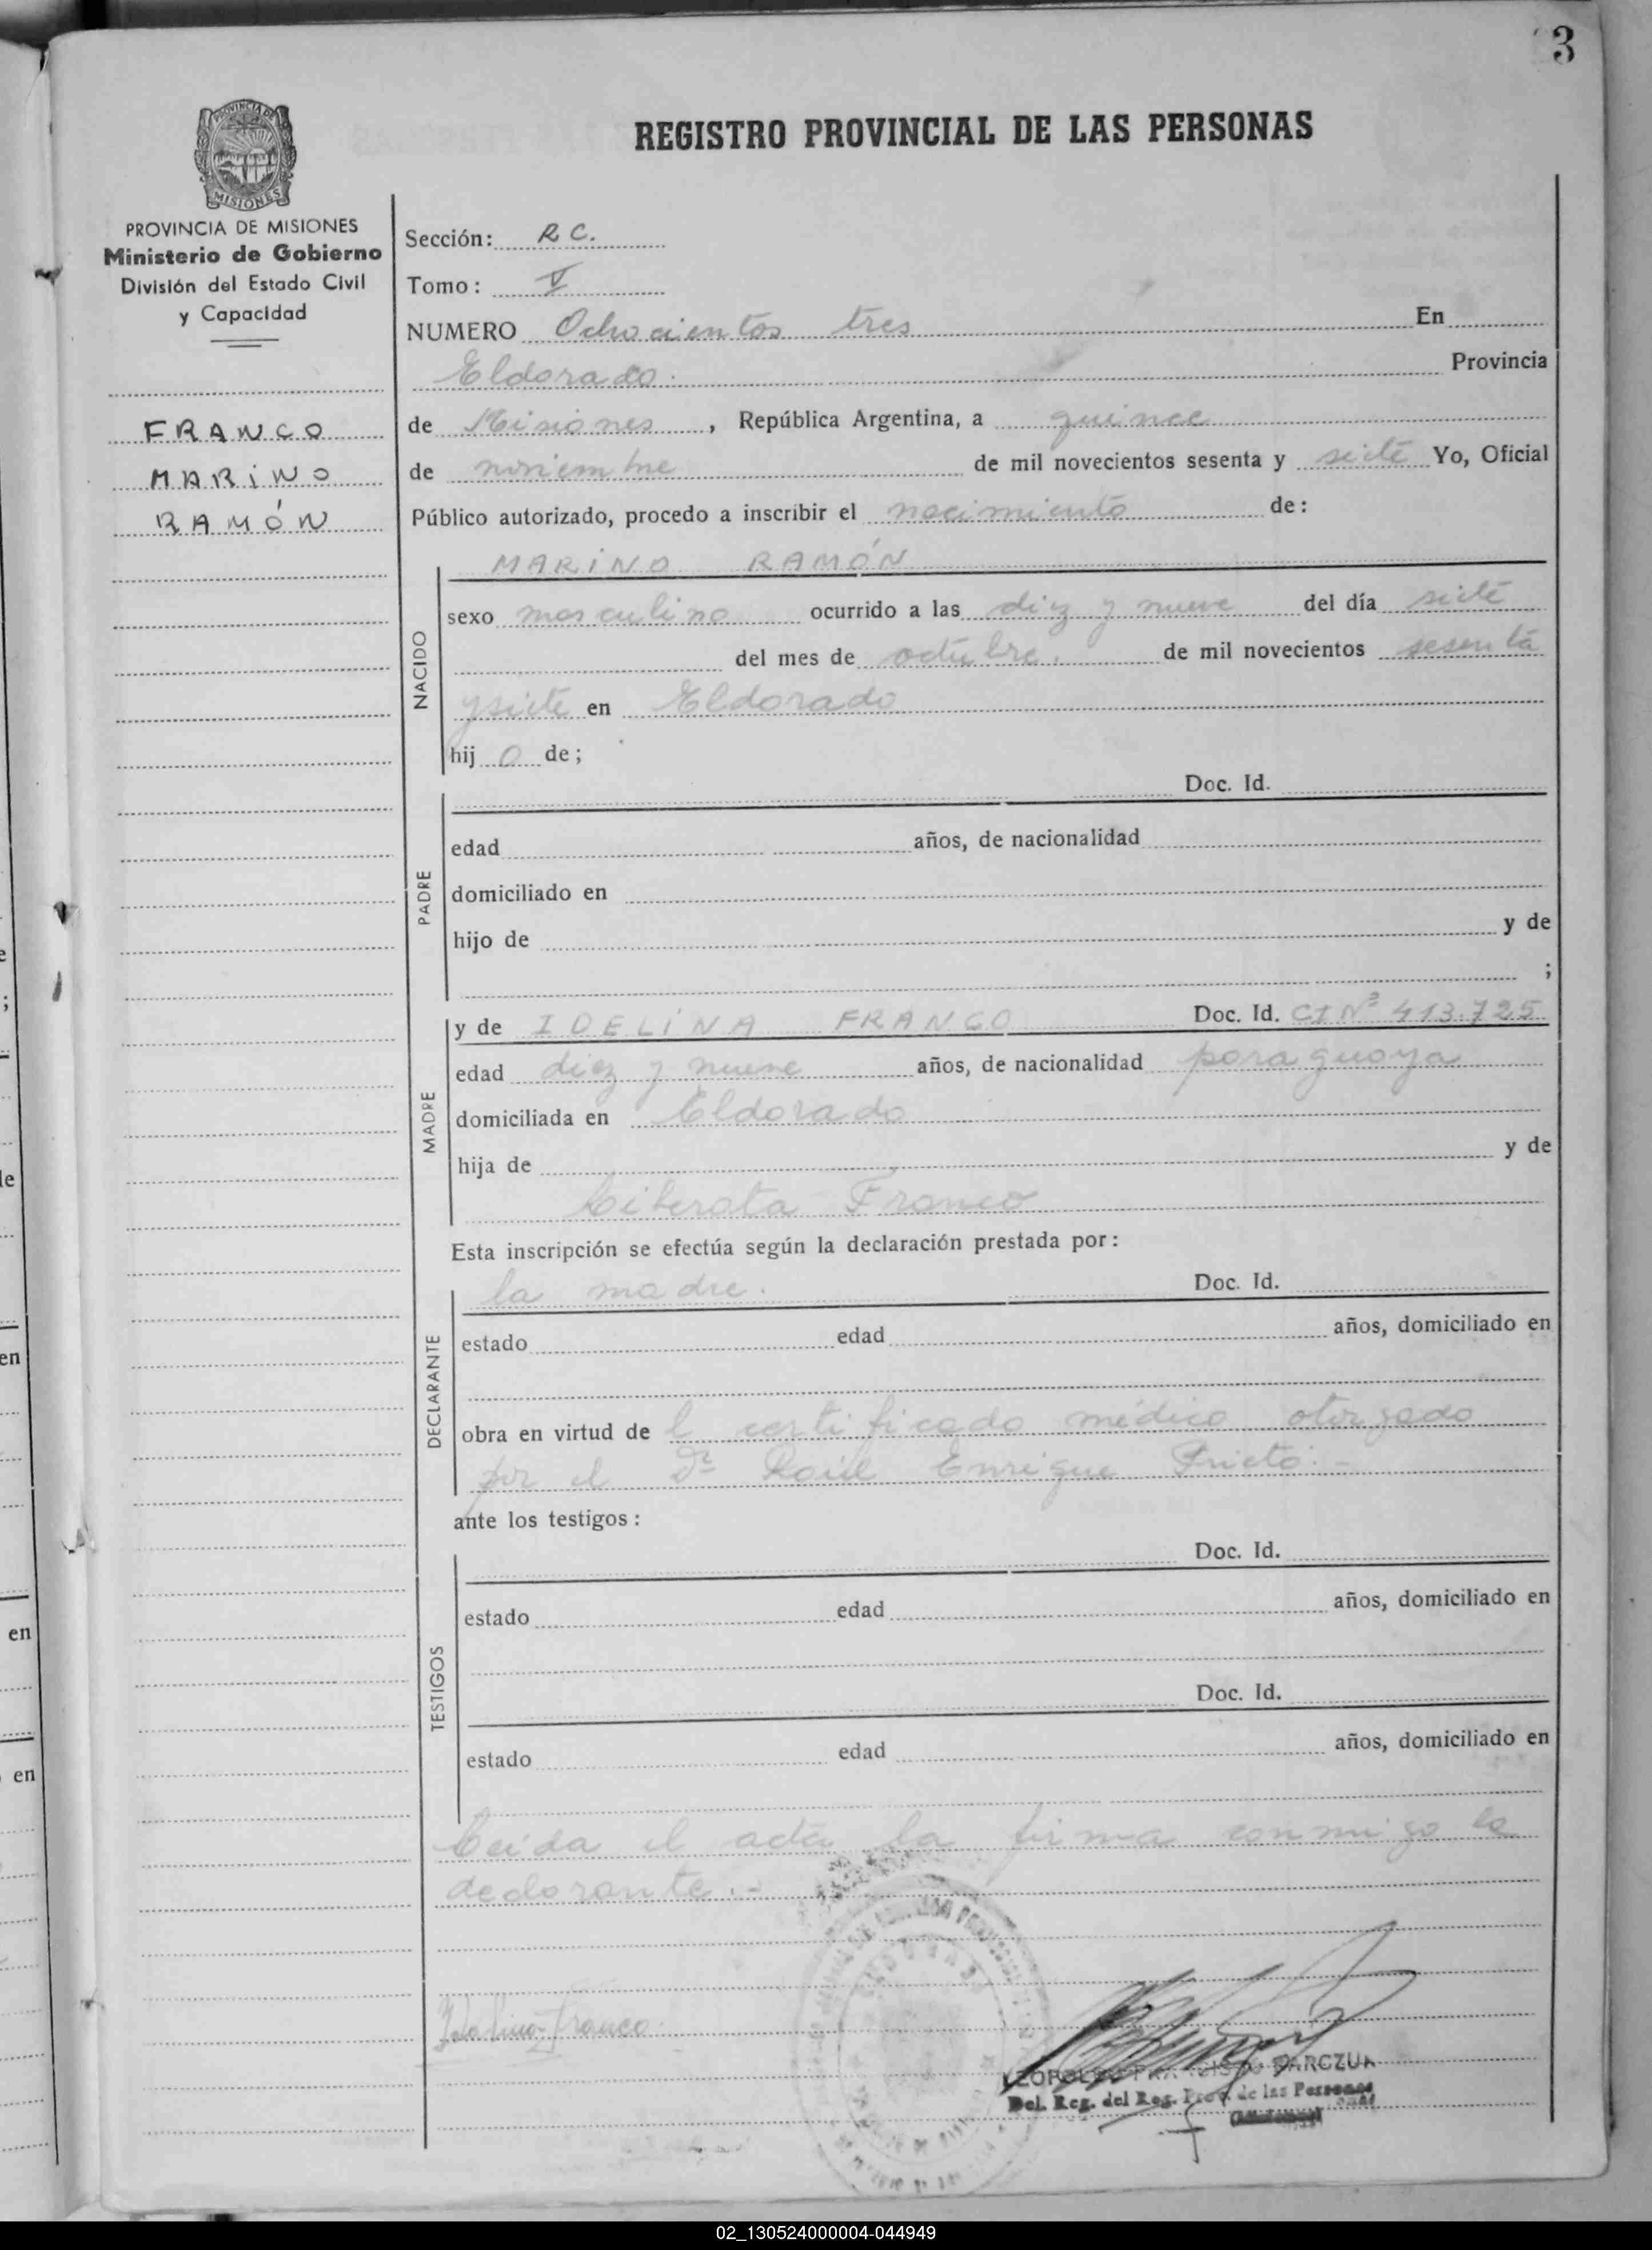 3
REGISTRO PROVINCIAL DE LAS PERSONAS
PROVINCIA DE MISIONES
Ministerio de Gobierno
División del Estado Civil
y Capacidad
FRANCO
MARINO
RAMÓN
Sección: R C.
Tomo: V
NUMERO Ochocientos tres En
Eldorado. Provincia
de Misiones, República Argentina, a quince
de noviembre de mil novecientos sesenta y siete Yo, Oficial
Público autorizado, procedo a inscribir el nacimiento de:
NACIDO
MARINO RAMÓN
sexo masculino ocurrido a las diez y nueve del día siete
del mes de octubre. de mil novecientos sesenta
y siete en Eldorado
hij o de;
PADRE
Doc. Id.
edad años, de nacionalidad
domiciliado en
hijo de y de
;
MADRE
y de IDELINA FRANCO Doc. Id. CI Nº 413.725
edad diez y nueve años, de nacionalidad paraguaya
domiciliada en Eldorado
hija de y de
Liberata Franco
Esta inscripción se efectúa según la declaración prestada por:
DECLARANTE
la madre. Doc. Id.
estado edad años, domiciliado en
obra en virtud de l certificado médico otorgado
por el Dr Raúl Enrique Prieto.-
ante los testigos:
TESTIGOS
Doc. Id.
estado edad años, domiciliado en
Doc. Id.
estado edad años, domiciliado en
Leída el acta la firma conmigo la
declarante.-
Franco
Del. Reg. del Reg. Prov. de las Personas
02_130524000004-044949